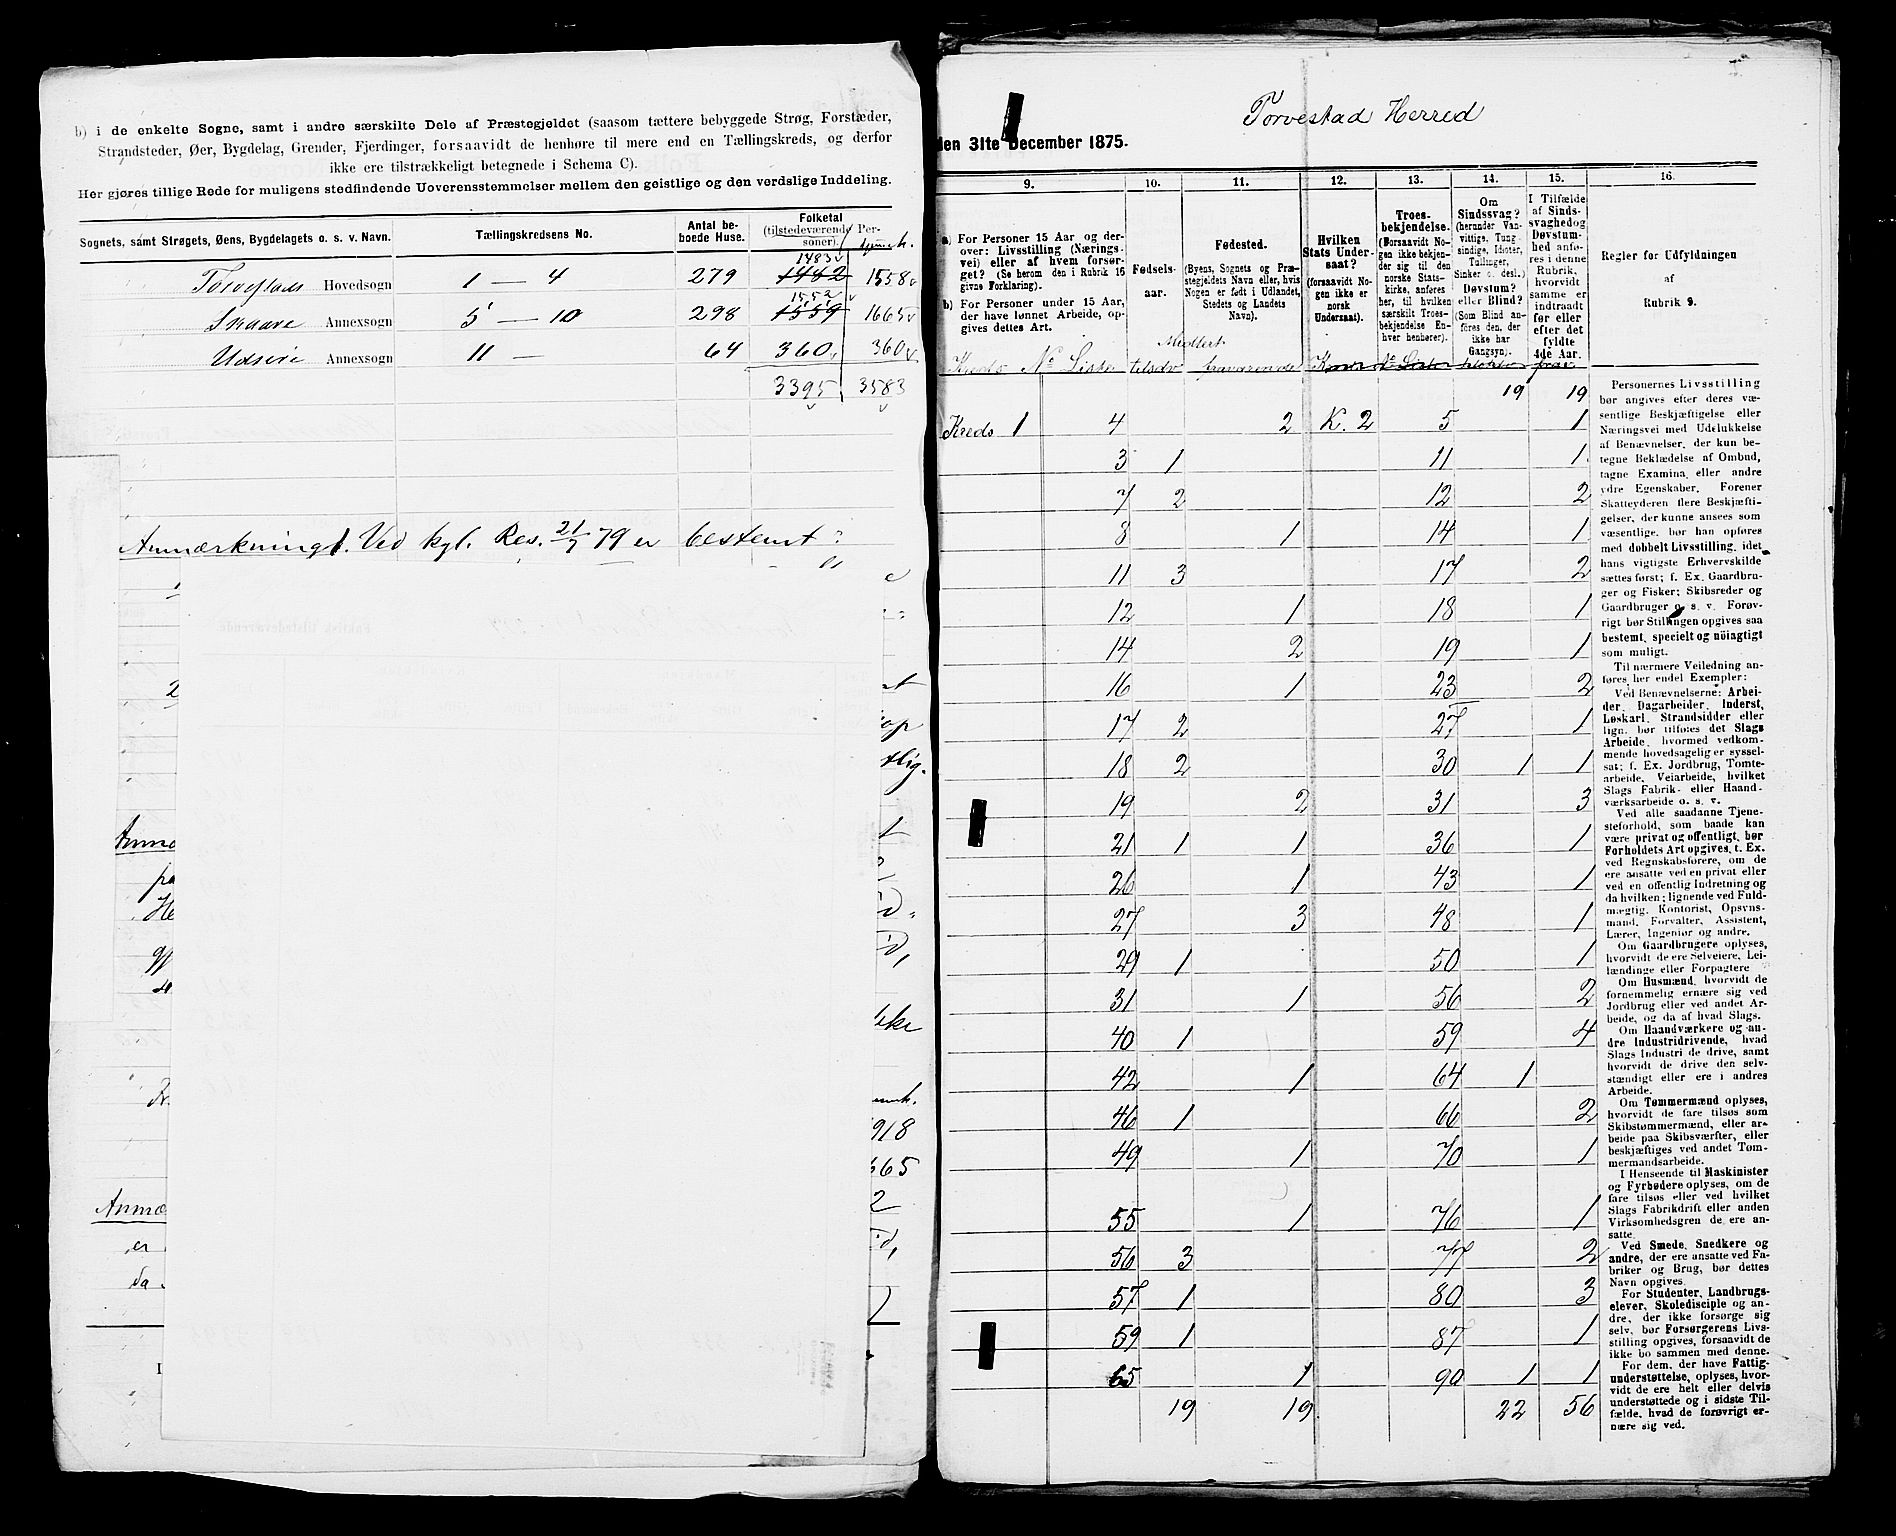 b) i de enkelte Sogne, samt i andre særskilte Dele af Præstegjeldet (saasom tættere bebyggede Strøg, Forstæder,
Strandsteder, Øer, Bygdelag, Grender, Fjerdinger, forsaavidt de henhøre til mere end en Tællingskreds, og derfor
ikke ere tilstrækkeligt betegnede i Schema C).
Her gjøres tillige Rede for muligens stedfindende Uoverensstemmelser mellem den geistlige og den verdslige Inddeling.
Sognets, samt Strøgets, Øens, Bygdelagets o. s. v. Navn. Tællingskredsens No. Antal beboede Huse. Folketal (tilstedeværende Personer).
1483
Torvestads Hovedsogn 1 — 4 279 1442 1558
1552
Skaare Annexsogn 5 — 10 298 1559 1665
Udsire Annexsogn 11 — 64 360 360
3395 3583
Anmærkning 1. Ved kgl. Res. 21/7 79 er bestemt:
2
Anmæ
er
da
918
665
2
Torvestad Herred
den 31te December 1875.
9. 10. 11. 12. 13. 14. 15. 16.
a) For Personer 15 Aar og derover: Livsstilling (Næringsvei) eller af hvem forsørget? (Se herom den i Rubrik 16 givne Forklaring).
b) For Personer under 15 Aar, der have lønnet Arbeide, opgives dettes Art.
Fødselsaar.
Fødested.
(Byens, Sognets og Præstegjeldets Navn eller, hvis Nogen er født i Udlandet, Stedets og Landets Navn).
Hvilken Stats Undersaat?
(forsaavidt Nogen ikke er norsk Undersaat).
Troesbekjendelse.
(Forsaavidt Nogen ikke bekjender sig til den norske Statskirke, anføres her, til hvilken særskilt Troesbekjendelse Enhver henhører).
Om Sindssvag? (herunder Vanvittige, Tungsindige, Idioter, Tullinger, Sinker o. desl.) Døvstum? eller Blind?
(Som Blind anføres den, der ikke har Gangsyn).
I Tilfælde af Sindssvaghed og Døvstumhed anføres i denne Rubrik, hvorvidt samme er indtraadt før eller efter det fyldte 4de Aar.
Regler for Udfyldningen
af
Rubrik 9.
Kreds No Liste tilsdv fraværende
19 19
Kreds 1 4 2 K. 2 5 1
3 1 11 1
7 2 12 2
8 1 14 1
11 3 17 2
12 1 18 1
14 2 19 1
16 1 23 2
17 2 27 1
18 2 30 1 1
19 2 31 3
21 1 1 36 1
26 1 43 1
27 3 48 1
29 1 50 1
31 1 56 2
40 1 59 4
42 1 64 1
46 1 66 2
49 1 70 1
55 1 76 1
56 3 77 2
57 1 80 3
59 1 87 1
65 1 90 1 1
19 19 22 56
Personernes Livsstilling
bør angives efter deres væsentlige
Beskjæftigelse eller
Næringsvei med Udelukkelse
af Benævnelser, der kun betegne
Beklædelse af Ombud,
tagne Examina, eller andre
ydre Egenskaber. Forener
Skatteyderen flere Beskjæftigelser,
der kunne ansees som
væsentlige, bør han opføres
med dobbelt Livsstilling, idet
hans vigtigste Erhvervskilde
sættes først; f. Ex. Gaardbruger
og Fisker; Skibsreder og
Gaardbruger o. s. v. Forøvrigt
bør Stillingen opgives saa
bestemt, specielt og nøiagtigt
som muligt.
Til nærmere Veiledning anføres
her endel Exempler:
Ved Benævnelserne: Arbeider,
Dagarbeider, Inderst,
Løskarl, Strandsidder eller
lign. bør tilføres det Slags
Arbeide, hvormed vedkommende
hovedsagelig er sysselsat;
f. Ex. Jordbrug, Tomtearbeide,
Veiarbeide, hvilket
Slags Fabrik- eller Haandværksarbeide
o. s. v.
Ved alle saadanne Tjenesteforhold,
som baade kan
være privat og offentligt, bør
Forholdets Art opgives, t. Ex.
ved Regnskabsførere, om de
ere ansatte ved en privat eller
ved en offentlig Indretning og
da hvilken; lignende ved Fuldmægtig,
Kontorist, Opsynsmand,
Forvalter, Assistent,
Lærer, Ingeniør og andre.
Om Gaardbrugere oplyses,
hvorvidt de ere Selveiere, Leilændinge
eller Forpagtere
Om Husmænd, hvorvidt de
fornemmelig ernære sig ved
Jordbrug eller ved andet Arbeide,
og da af hvad Slags.
Om Haandværkere og andre
Industridrivende, hvad
Slags Industri de drive, samt
hvorvidt de drive den selvstændigt
eller ere i andres
Arbeide.
Om Tømmermænd oplyses,
hvorvidt de fare tilsøs som
Skibstømmermænd, eller arbeide
paa Skibsværfter, eller
beskjæftiges ved andet Tømmermandsarbeide.
I Henseende til Maskinister
og Fyrbødere oplyses, om de
fare tilsøs eller ved hvilket
Slags Fabrikdrift eller anden
Virksomhedsgren de ere ansatte.
Ved Smede, Snedkere og
andre, der ere ansatte ved Fabriker
og Brug, bør dettes
Navn opgives.
For Studenter, Landbrugselever,
Skoledisciple og andre,
der ikke forsørge sig
selv, bør Forsørgerens Livsstilling
opgives, forsaavidt de
ikke bo sammen med denne.
For dem, der have Fattigunderstøttelse,
oplyses, hvorvidt
de ere helt eller delvis
understøttede og i sidste Tilfælde,
hvad de forøvrigt ernære
sig ved.